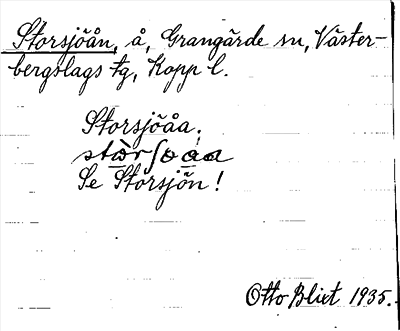 Storsjöån, å, Grangärde sn, Väster-
bergslags tg, Kopp l.
Storsjöåa.
Se Storsjön!
Otto Blixt 1935.